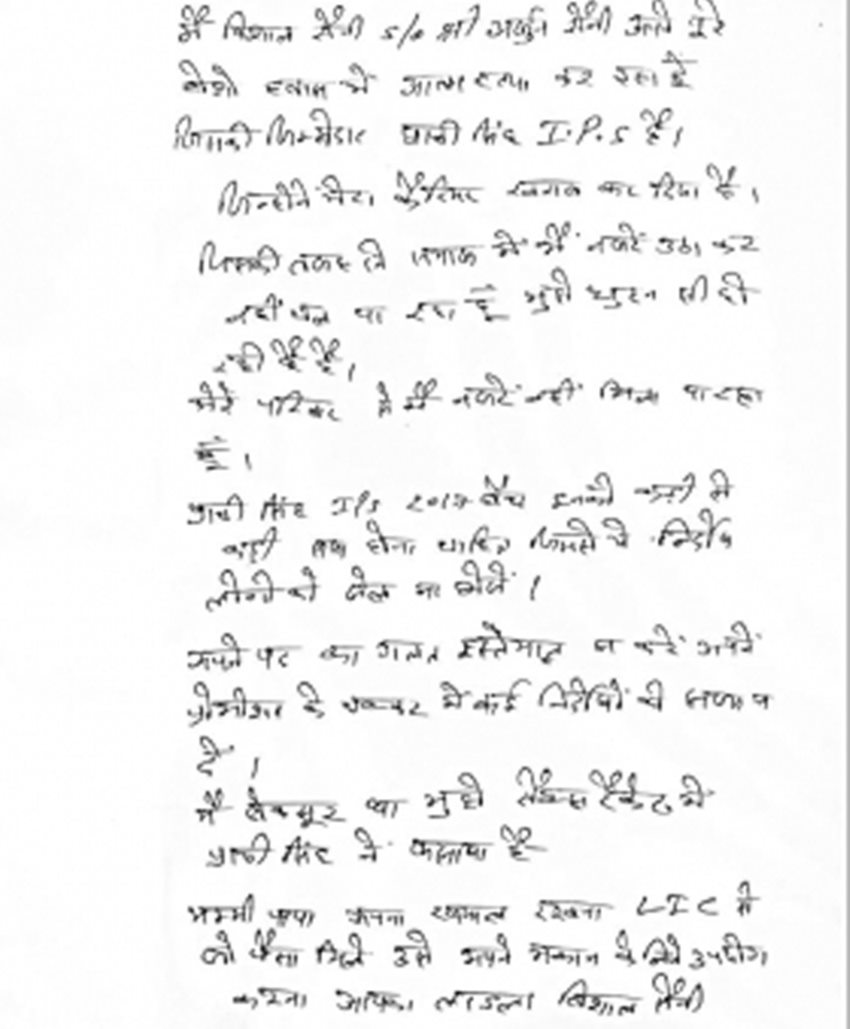 मैं विशाल सैनी S/o श्री अर्जुन सैनी अपने पुरे
होशो हवास में आत्म हत्या कर रहा हूँ
जिसकी जिम्मेदार प्राची सिंह I.P.S है।
जिन्होने मेरा कैरियर खराब कर दिया है।
जिसकी वजह से समाज में मैं नजरें उठा कर
नहीं चल पा रहा हूँ मुझे घुटन सी हो
रही है।
मेरे परिवार से मैं नजरें नहीं मिला पा रहा
हूँ।
प्राची सिंह IPS 2017 बैच इनको में
सजा होना चाहिए जिससे ये निर्दोष
लोगो को जेल ना भेजें।
अपने पद का गलत इस्तेमाल न करें अपने
प्रोमोशन के चक्कर में कई निर्दोषों को न
दे।
मैं बेकसूर था मुझे सैक्स रैकेट में
प्राची सिंह ने फसाया है
मम्मी पापा अपना ख्याल रखना LIC से
जो पैसा मिले उसे अपने मकान के लिये उपयोग
करना आपका लाडला विशाल सैनी